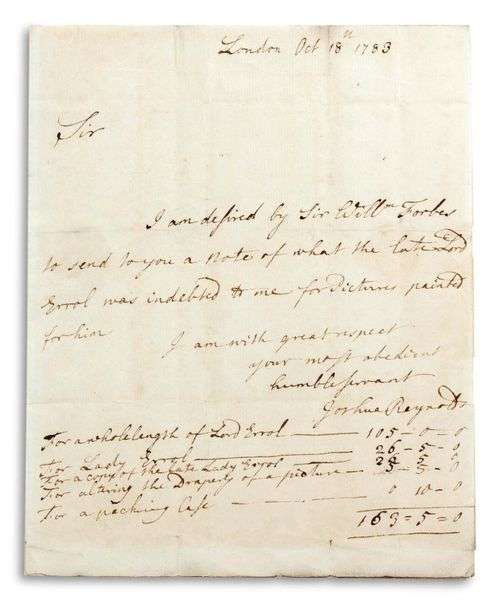 London Oct 18th 1783
Sir
I am desired by Sir Willm Forbes
to send to you a Note of what the late Lord
Errol was indebted to me for Pictures painted
for him
I am with great respect
your most obedient
humble servant
Joshua Reynolds
For a whole length of Lord Errol — 105-0-0
For Lady Errol — 26-5-0
For a copy of the late Lady Errol 5-0
For altering the Drapery of a picture — 5-5-0
For a packing Case — 0 10-0
163=5=0